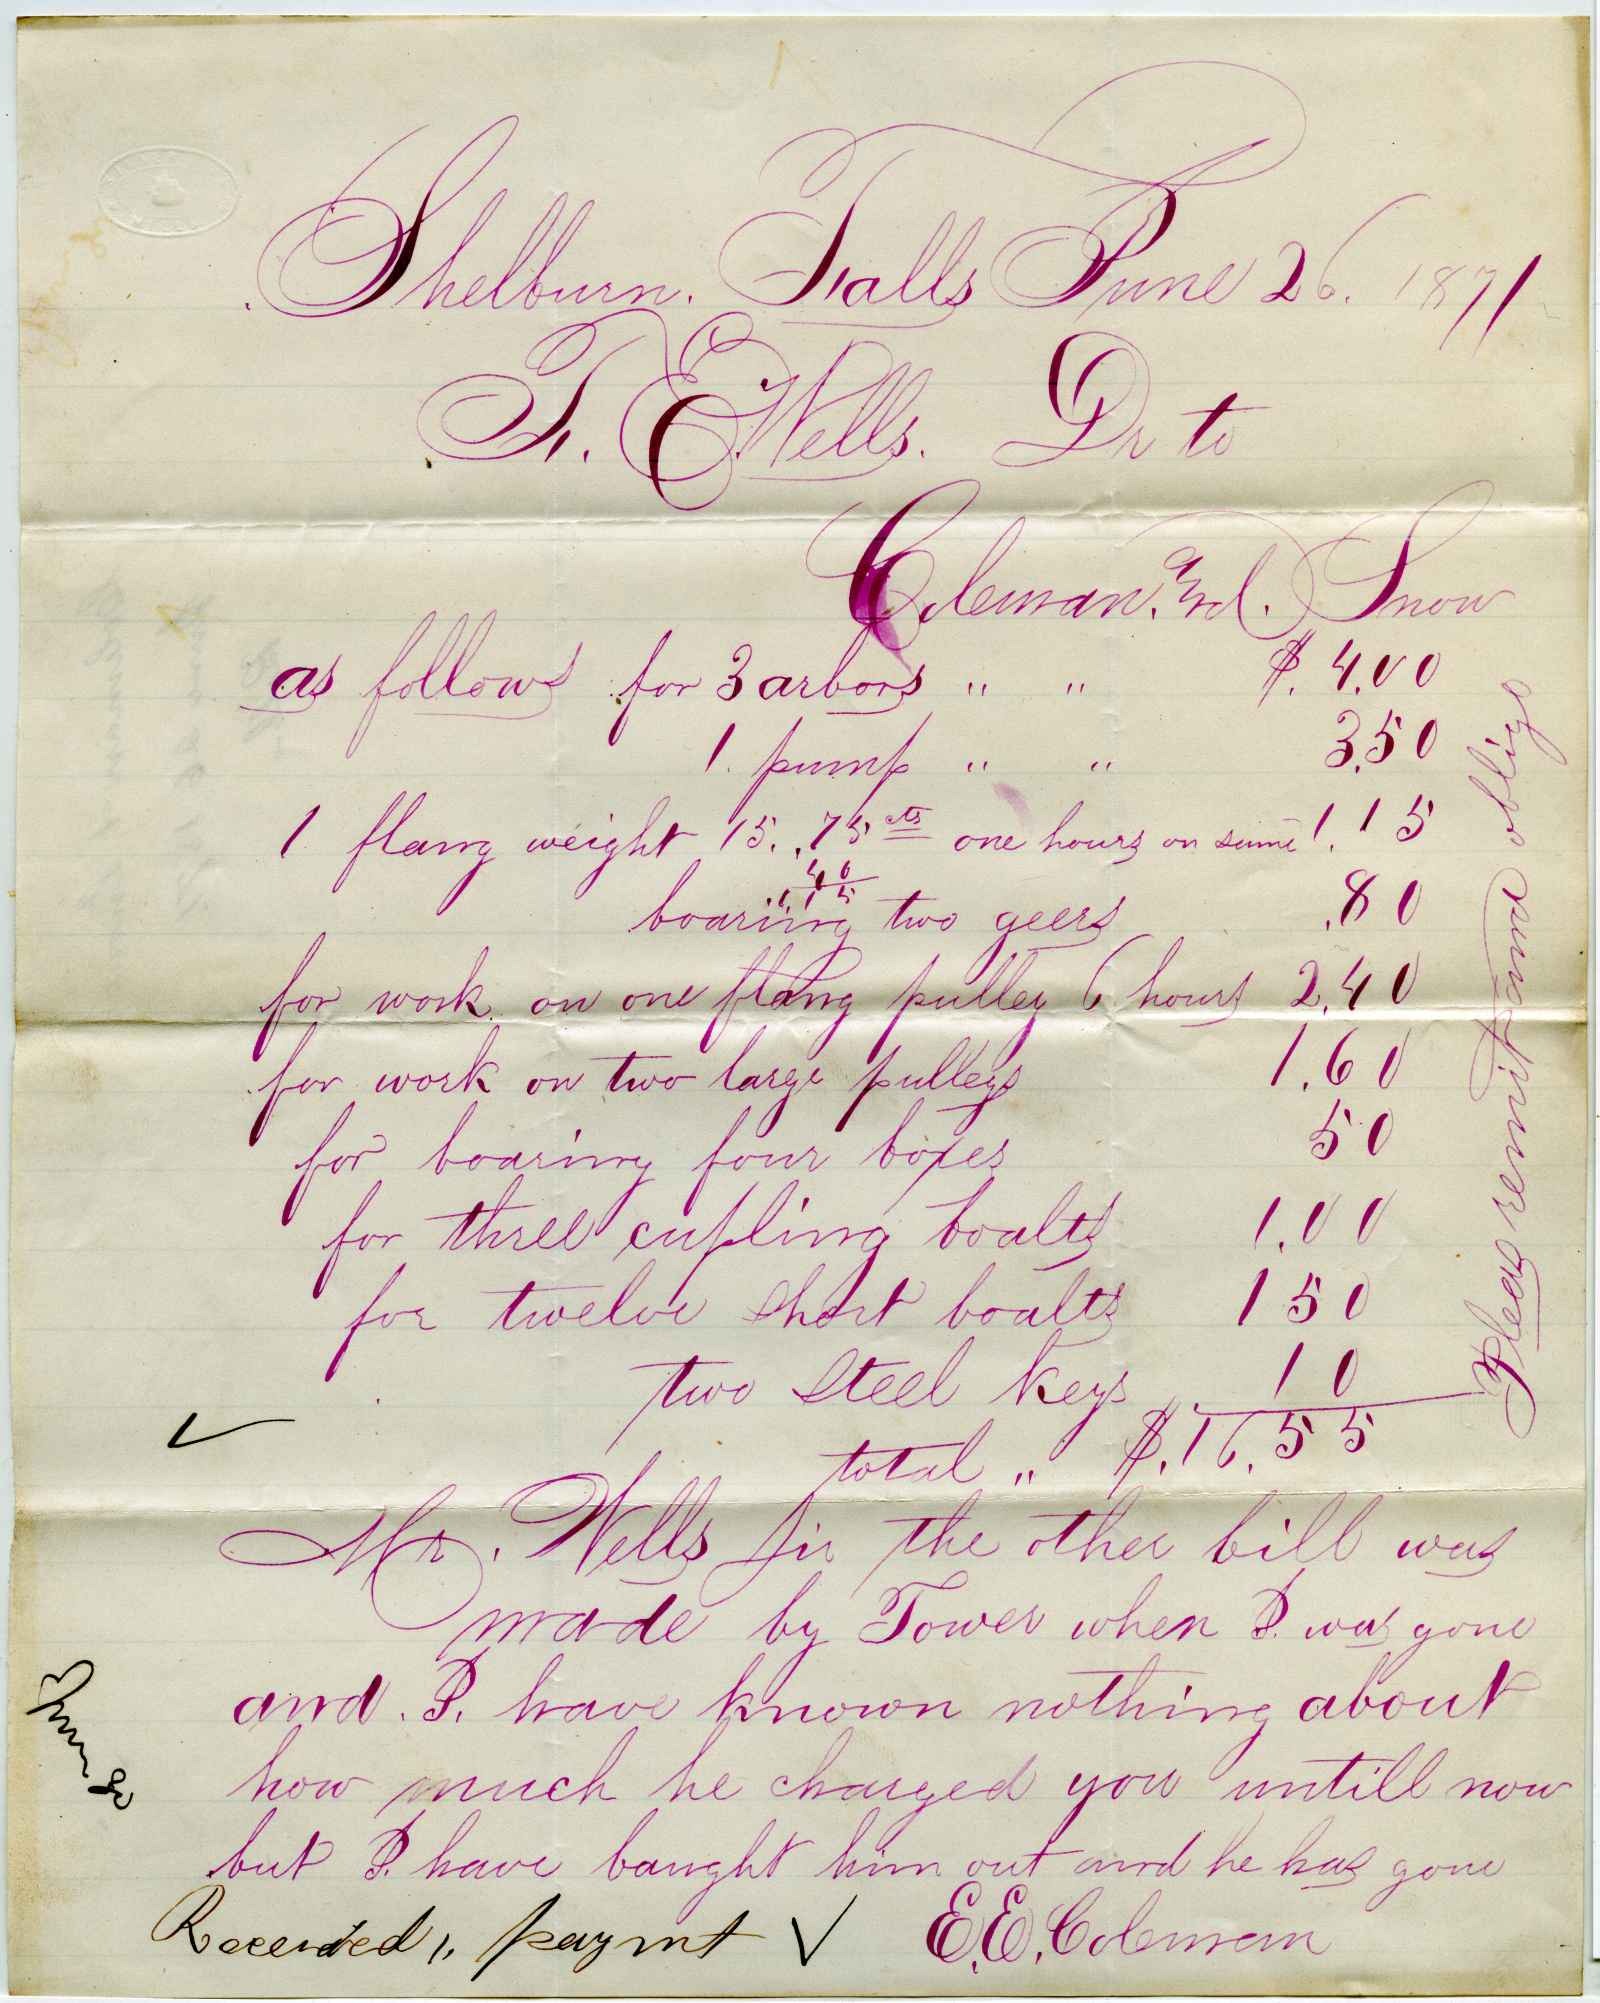 Shelburn. Falls June 26. 1871
T. E. Wells. Dr to
Coleman. and. Snow
as follows for 3 arbors " " $. 4.00
1. pump " " 3.50
1 flang weight 15. .75 cts one hours on same 1.15
.40
1.15
boaring two geers .80
for work on one flang pulley 6 hours 2.40
for work on two large pulleys 1.60
for boaring four boxes 50
for three cupling boalts 1.00
for twelve short boalts 1 50
two steel keys 10
total " $.16.55
Mr. Wells Sir the other bill was
made by Tower when I. was gone
and. I. have known nothing about
how much he charged you untill now
but I. have baught him out and he has gone
E. E. Coleman
Receieved ,, paymt
Pleas remit and oblige